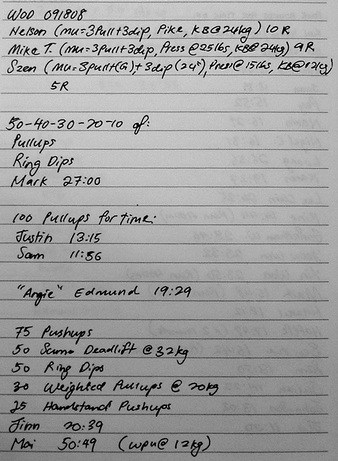 WOD 091808
Nelson (mu=3pull+3dip, Pike, KB@24kg) 10 R
Mike T. (mu=3pull+3dip, Press @25lbs, KB@24kg) 9R
Szen (mu=3pull+(G)+3dip(24"), Press@15lbs, KB@12kg)
5R
50-40-30-20-10 of:
Pullups
Ring Dips
Mark 27:00
100 Pullups for time:
Justin 13:15
Sam 11:56
"Angie" Edmund 19:29
75 Pushups
50 Sumo Deadlift @ 32kg
50 Ring Dips
30 Weighted Pullups @ 20kg
25 Handstand Pushups
Jinn 20:39
Mai 50:49 (wpu@12kg)